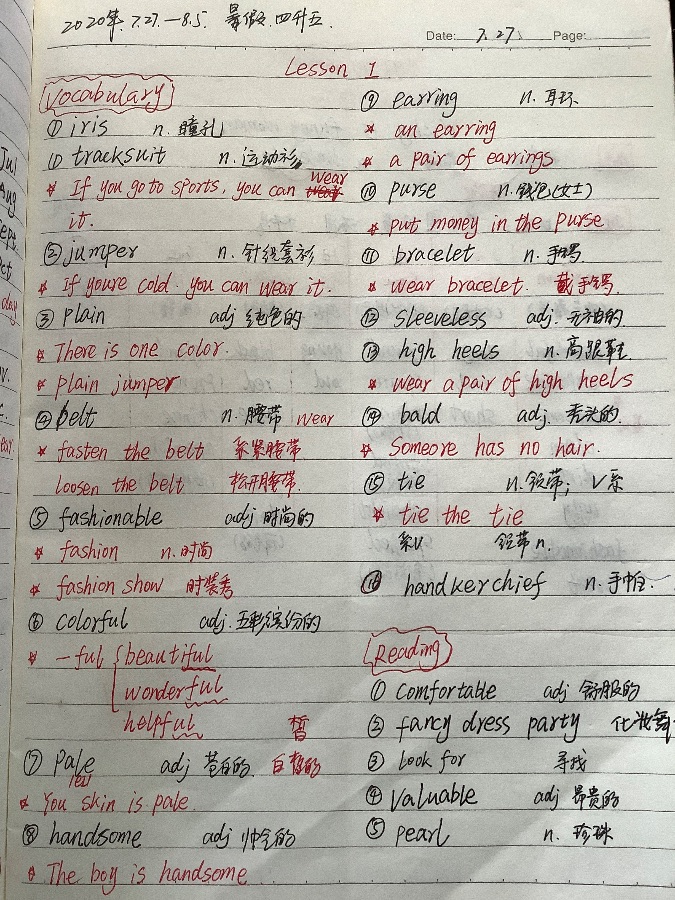 2020年.7.27.—8.5. 暑假.四升五.
Date: 7.27. Page:
Lesson 1
Vocabulary
① iris n. 瞳孔
① tracksuit n. 运动衫
* If you go to sports, you can wear
it.
② jumper n. 针织套衫
* If youre cold. you can wear it.
③ plain adj 纯色的
* There is one color.
* plain jumper
④ belt n. 腰带 wear
* fasten the belt 系紧腰带
loosen the belt 松开腰带.
⑤ fashionable adj 时尚的
* fashion n. 时尚
* fashion show 时装秀
⑥ colorful adj. 五彩缤纷的
* -ful { beautiful
wonderful
helpful 皙
⑦ pale adj 苍白的 白皙的
/eɪ/
* You skin is pale.
⑧ handsome adj 帅气的
* The boy is handsome
⑨ earring n. 耳环
* an earring
* a pair of earrings
⑩ purse n. 钱包(女士)
* put money in the purse
⑪ bracelet n. 手镯
* wear bracelet. 戴手镯.
⑫ sleeveless adj. 无袖的.
⑬ high heels n. 高跟鞋.
* wear a pair of high heels
⑭ bald adj. 秃头的.
* Someore has no hair.
⑮ tie n. 领带; v 系
* tie the tie
系v 领带 n.
⑯ handkerchief n. 手帕.
Reading
① comfortable adj 舒服的
② fancy dress party
③ look for 寻找
④ valuable adj 昂贵的
⑤ pearl n. 珍珠